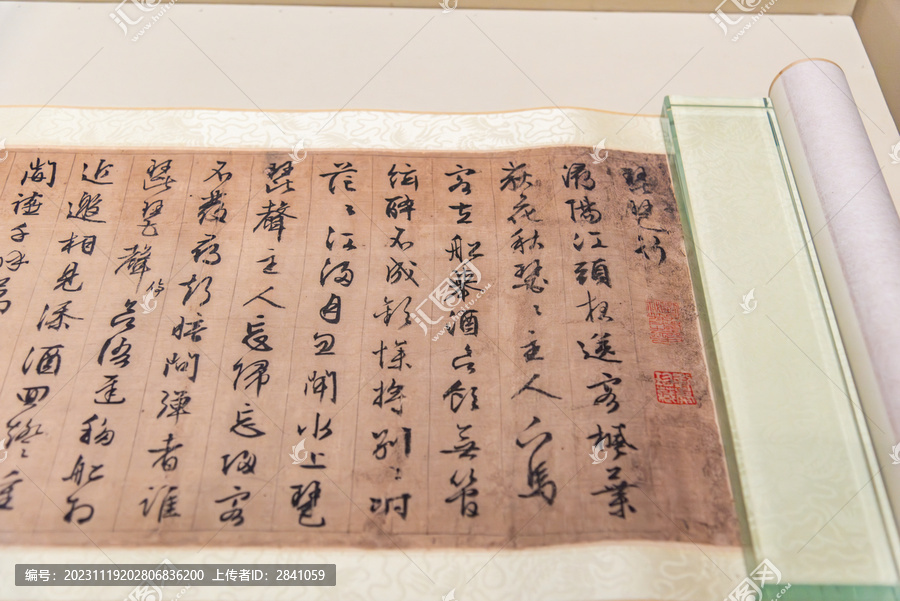 琵琶行
潯陽江頭夜送客楓葉
荻花秋瑟〻主人下馬
客在船舉酒欲飲無管
絃醉不成歡慘將別〻時
茫〻江浸月忽聞水上琵
琶聲主人忘歸忘歸客
不發尋聲暗問彈者誰
琵琶聲停欲語遲移船相
近邀相見添酒回燈重
開宴千呼萬
编号：20231119202806836200 上传者ID：2841059